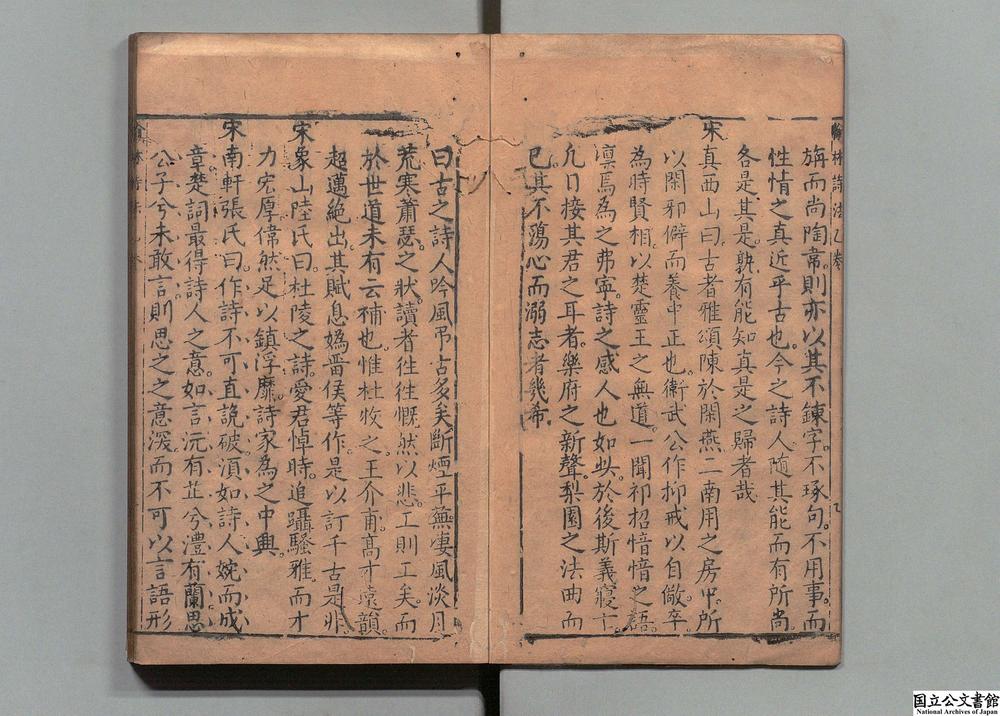 旃而尚陶韋則亦以其不鍊字不琢句不用事而
性情之真近乎古也今之詩人隨其能而有所尚
各是其是孰有能知真是之歸者哉
宋真西山曰古者雅頌陳於閑燕二南用之房中所
以閑邪僻而養中正也衛武公作抑戒以自儆卒
為時賢相以楚靈王之無道一聞祈招愔愔之語
凛焉為之弗寧詩之感人也如此於後斯義寢亡
凡日接其君之耳者樂府之新聲梨園之法曲而
已其不蕩心而溺志者幾希
曰古之詩人吟風弔古多矣斷煙平蕪淒風淡月
荒寒蕭瑟之狀讀者往往慨然以悲工則工矣而
於世道未有云補也惟杜牧之王介甫髙才遠韻
超邁絶出其賦息媯畱侯等作是以訂千古是非
宋象山陸氏曰杜陵之詩愛君悼時追躡騷雅而才
力宏厚偉然足以鎮浮靡詩家為之中興
宋南軒張氏曰作詩不可直說破湏如詩人婉而成
章楚詞最得詩人之意如言沅有芷兮澧有蘭思
公子兮未敢言則思之之意深而不可以言語形
国立公文書館
National Archives of Japan